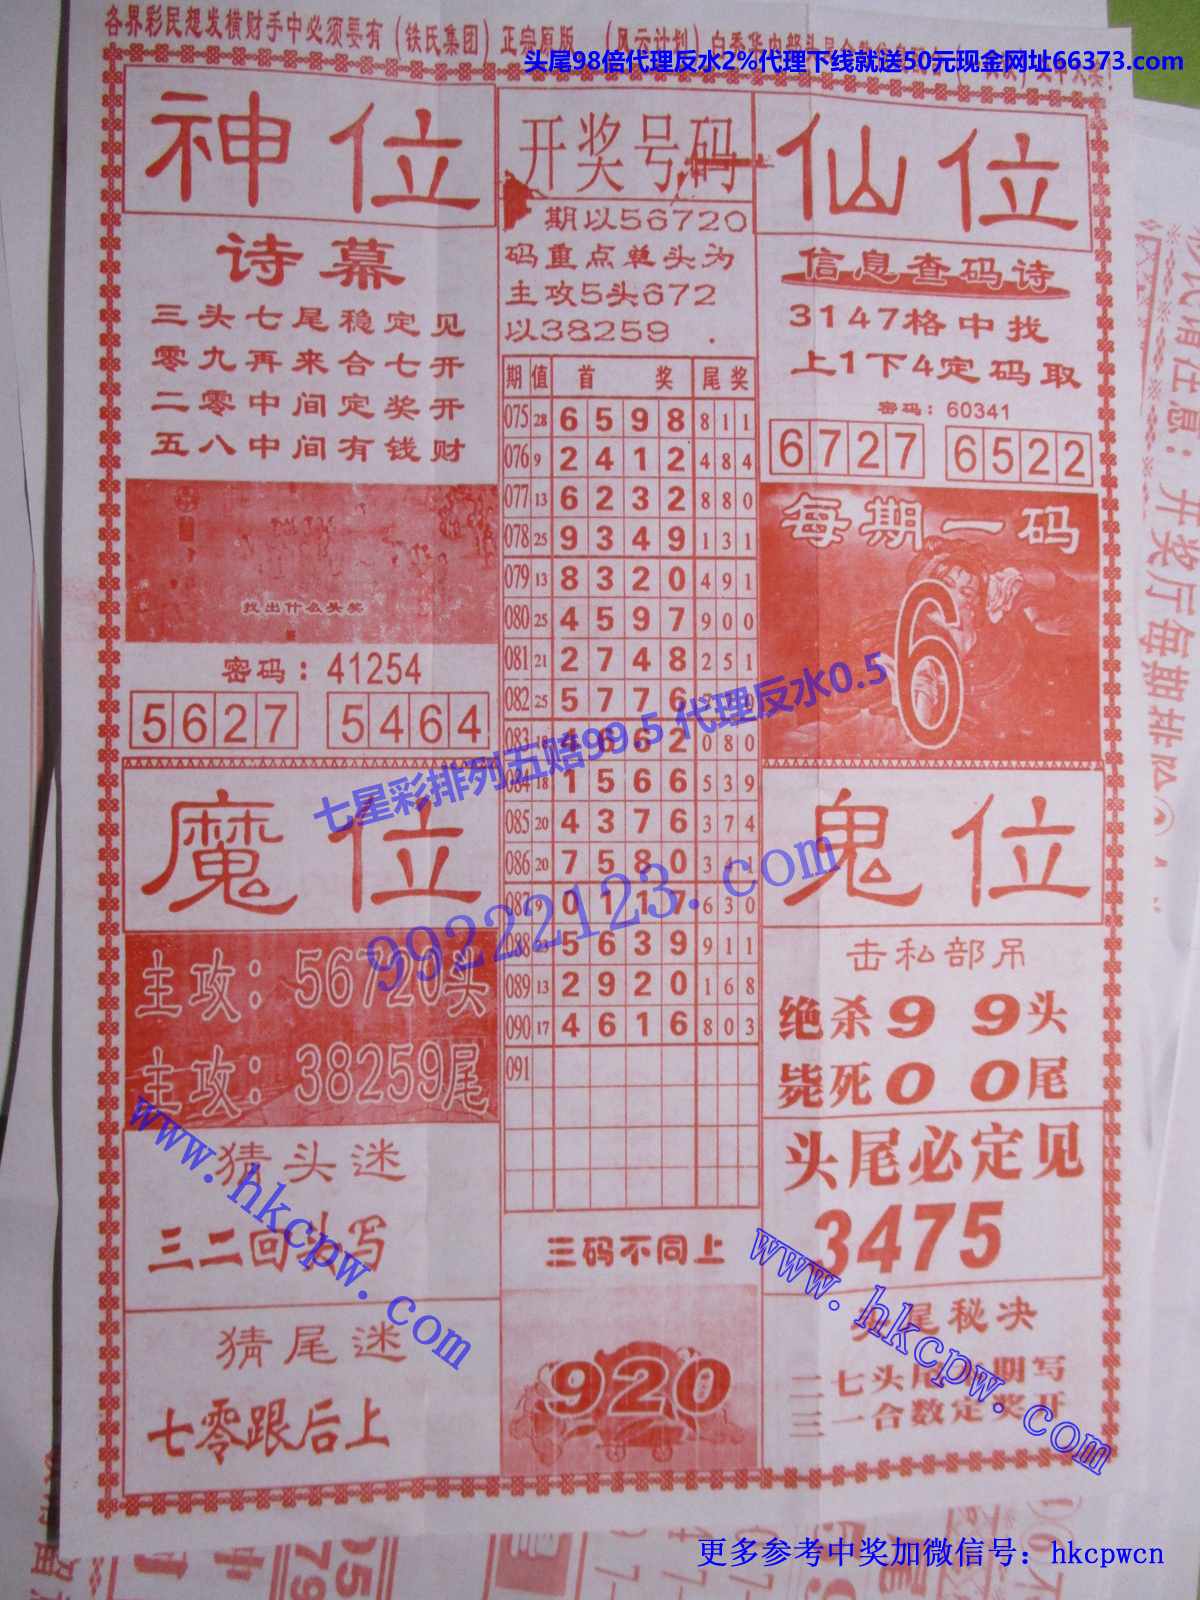 各界彩民想发横财手中必须要有（铁氏集团）正宗原版
头尾98倍代理反水2%代理下线就送50元现金网址66373.com
神位
诗幕
三头七尾稳定见
零九再来合七开
二零中间定奖开
五八中间有钱财
找出什么头奖
密码：41254
5627 5464
魔位
主攻：56720头
主攻：38259尾
猜头迷
三二回头写
猜尾迷
七零跟后上
开奖号码
期以56720
码重点单头为
主攻5头672
以38259 .
期 值 首 奖 尾 奖
075 28 6 5 9 8 8 1 1
076 9 2 4 1 2 4 8 4
077 13 6 2 3 2 8 8 0
078 25 9 3 4 9 1 3 1
079 13 8 3 2 0 4 9 1
080 25 4 5 9 7 9 0 0
081 21 2 7 4 8 2 5 1
082 25 5 7 7 6
083 18 4 6 6 2 0 8 0
084 18 1 5 6 6 5 3 9
085 20 4 3 7 6 3 7 4
086 20 7 5 8 0 3 4 1
087 9 0 1 1 7 6 3 0
088 23 5 6 3 9 9 1 1
089 13 2 9 2 0 1 6 8
090 17 4 6 1 6 8 0 3
091
三码不同上
920
仙位
信息查码诗
3147格中找
上1下4定码取
密码：60341
6727 6522
每期一码
6
鬼位
击私部吊
绝杀99头
毙死00尾
头尾必定见
3475
头尾秘决
二七头尾本期写
三一合数定奖开
七星彩排列五赔99.5 代理反水0.5
99222123.com
www.hkcpw.com
www.hkcpw.com
更多参考中奖加微信号：hkcpwcn